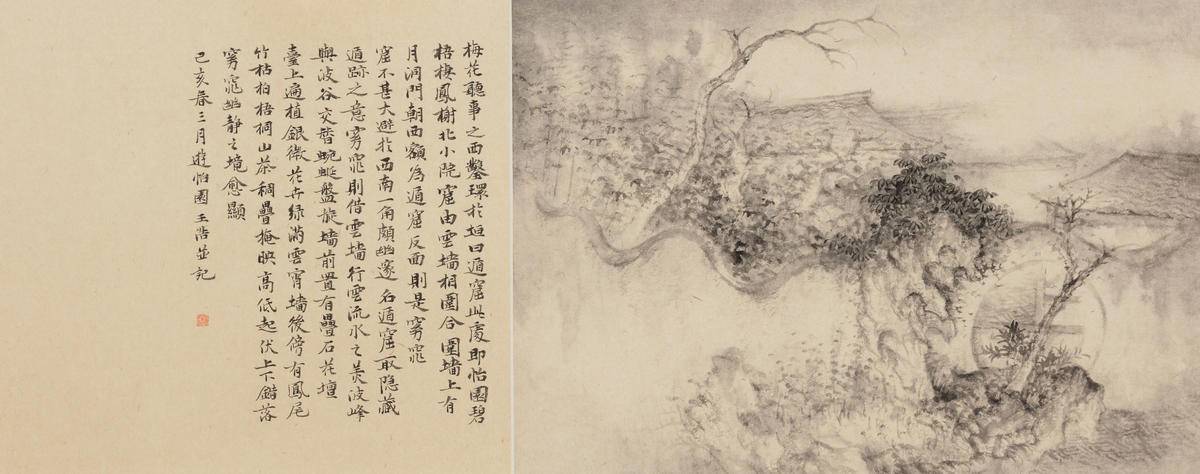 梅花聽事之西鑿環於垣曰遁窟此處即怡園碧
梧棲鳳榭北小院窟由雲墻相圍合圍墻上有
月洞門朝西額為遁窟反面則是窈窕
窟不甚大避於西南一角頗幽邃名遁窟取隐藏
遁跡之意窈窕則借雲墻行雲流水之美波峰
與波谷交替蜿蜒盤旋墻前置有疊石花壇
臺上遍植銀薇花卉绿滿雲霄墻後傍有鳳尾
竹枯柏梧桐山茶稠疊掩映高低起伏上下錯落
窈窕幽静之境愈顯
己亥春三月遊怡園王浩並記